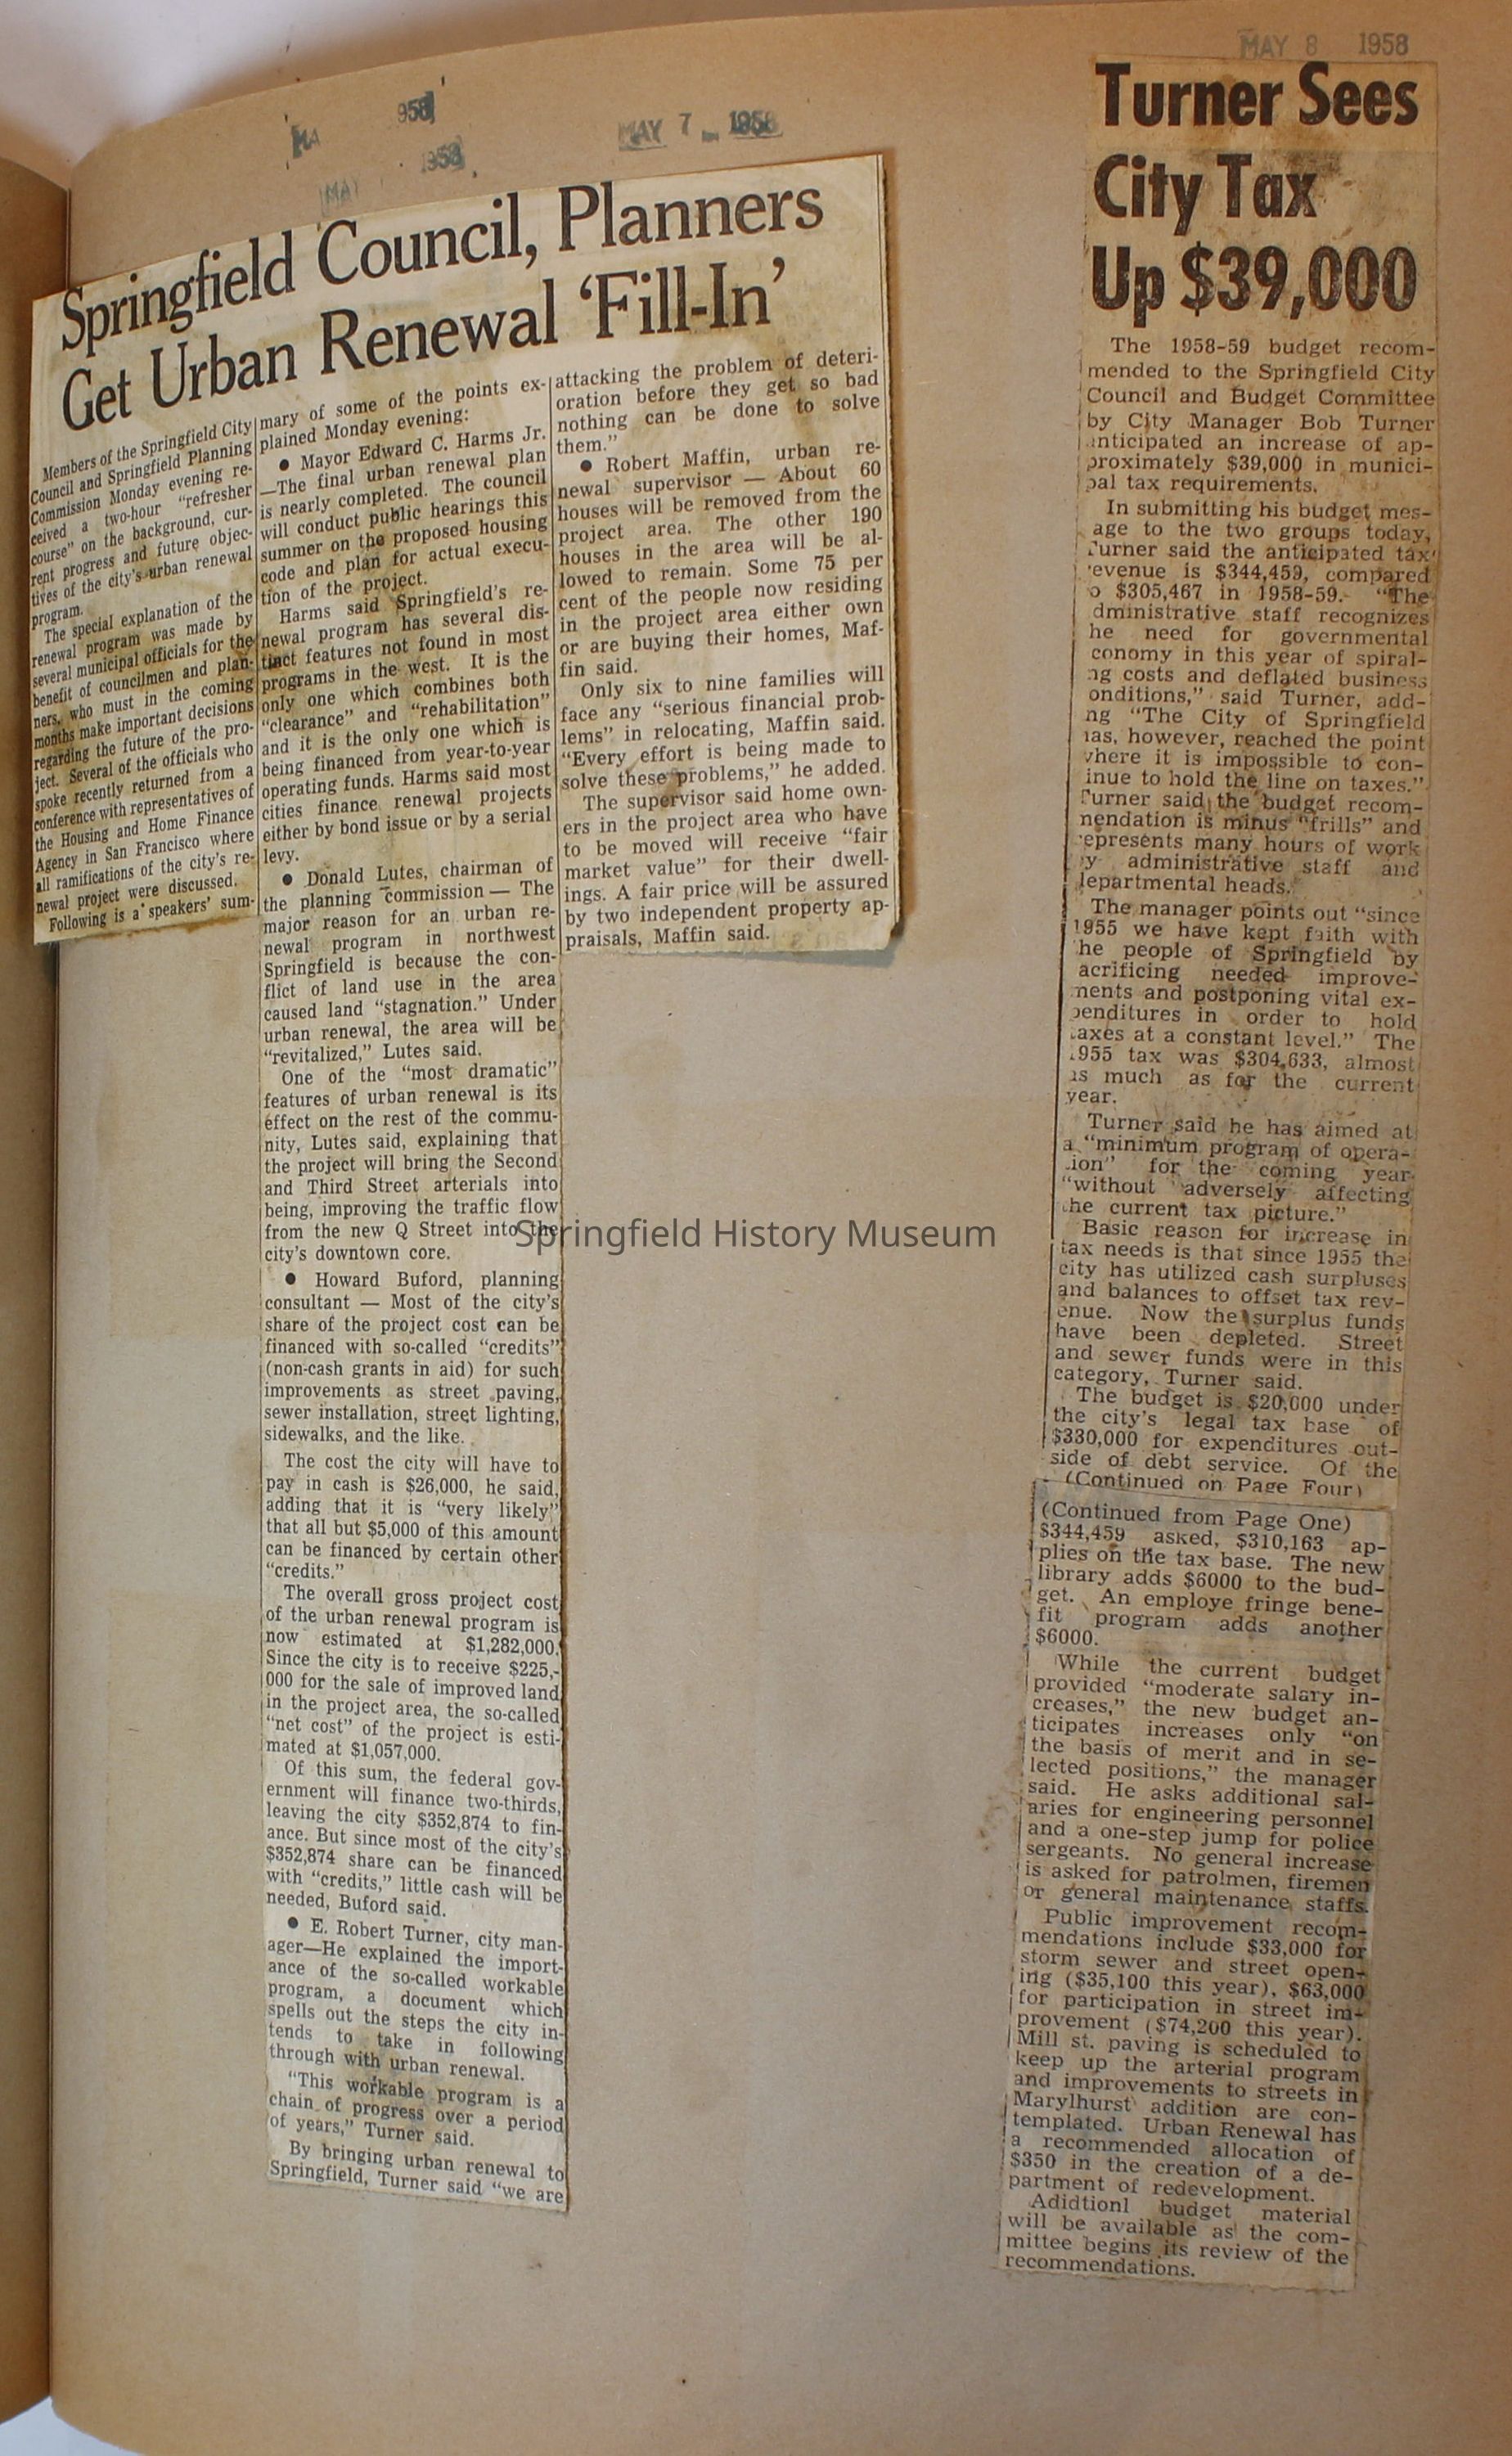 MA 958
1958
MAY
MAY 7 1958
Springfield Council, Planners
Get Urban Renewal 'Fill-In'
Members of the Springfield City
Council and Springfield Planning
Commission Monday evening re-
ceived a two-hour "refresher
course" on the background, cur-
rent progress and future objec-
tives of the city's urban renewal
program.
The special explanation of the
renewal program was made by
several municipal officials for the
benefit of councilmen and plan-
ners, who must in the coming
months make important decisions
regarding the future of the pro-
ject. Several of the officials who
spoke recently returned from a
conference with representatives of
the Housing and Home Finance
Agency in San Francisco where
all ramifications of the city's re-
newal project were discussed.
Following is a speakers' sum-
mary of some of the points ex-
plained Monday evening:
● Mayor Edward C. Harms Jr.
—The final urban renewal plan
is nearly completed. The council
will conduct public hearings this
summer on the proposed housing
code and plan for actual execu-
tion of the project.
Harms said Springfield's re-
newal program has several dis-
tinct features not found in most
programs in the west. It is the
only one which combines both
"clearance" and "rehabilitation"
and it is the only one which is
being financed from year-to-year
operating funds. Harms said most
cities finance renewal projects
either by bond issue or by a serial
levy.
● Donald Lutes, chairman of
the planning commission — The
major reason for an urban re-
newal program in northwest
Springfield is because the con-
flict of land use in the area
caused land "stagnation." Under
urban renewal, the area will be
"revitalized," Lutes said.
One of the "most dramatic"
features of urban renewal is its
effect on the rest of the commu-
nity, Lutes said, explaining that
the project will bring the Second
and Third Street arterials into
being, improving the traffic flow
from the new Q Street into the
city's downtown core.
● Howard Buford, planning
consultant — Most of the city's
share of the project cost can be
financed with so-called "credits"
(non-cash grants in aid) for such
improvements as street paving,
sewer installation, street lighting,
sidewalks, and the like.
The cost the city will have to
pay in cash is $26,000, he said,
adding that it is "very likely"
that all but $5,000 of this amount
can be financed by certain other
"credits."
The overall gross project cost
of the urban renewal program is
now estimated at $1,282,000.
Since the city is to receive $225,-
000 for the sale of improved land
in the project area, the so-called
"net cost" of the project is esti-
mated at $1,057,000.
Of this sum, the federal gov-
ernment will finance two-thirds,
leaving the city $352,874 to fin-
ance. But since most of the city's
$352,874 share can be financed
with "credits," little cash will be
needed, Buford said.
● E. Robert Turner, city man-
ager—He explained the import-
ance of the so-called workable
program, a document which
spells out the steps the city in-
tends to take in following
through with urban renewal.
"This workable program is a
chain of progress over a period
of years," Turner said.
By bringing urban renewal to
Springfield, Turner said "we are
attacking the problem of deteri-
oration before they get so bad
nothing can be done to solve
them."
● Robert Maffin, urban re-
newal supervisor — About 60
houses will be removed from the
project area. The other 190
houses in the area will be al-
lowed to remain. Some 75 per
cent of the people now residing
in the project area either own
or are buying their homes, Maf-
fin said.
Only six to nine families will
face any "serious financial prob-
lems" in relocating, Maffin said.
"Every effort is being made to
solve these problems," he added.
The supervisor said home own-
ers in the project area who have
to be moved will receive "fair
market value" for their dwell-
ings. A fair price will be assured
by two independent property ap-
praisals, Maffin said.
Springfield History Museum
MAY 8 1958
Turner Sees
City Tax
Up $39,000
The 1958-59 budget recom-
mended to the Springfield City
Council and Budget Committee
by City Manager Bob Turner
anticipated an increase of ap-
proximately $39,000 in munici-
pal tax requirements.
In submitting his budget mes-
age to the two groups today,
Turner said the anticipated tax
revenue is $344,459, compared
o $305,467 in 1958-59. "The
dministrative staff recognizes
he need for governmental
conomy in this year of spiral-
ng costs and deflated business
onditions," said Turner, add-
ng "The City of Springfield
has, however, reached the point
where it is impossible to con-
inue to hold the line on taxes."
Turner said the budget recom-
mendation is minus "frills" and
represents many hours of work
by administrative staff and
departmental heads.
The manager points out "since
1955 we have kept faith with
he people of Springfield by
acrificing needed improve-
ments and postponing vital ex-
penditures in order to hold
taxes at a constant level." The
1955 tax was $304,633, almost
as much as for the current
year.
Turner said he has aimed at
a "minimum program of opera-
tion" for the coming year
"without adversely affecting
the current tax picture."
Basic reason for increase in
tax needs is that since 1955 the
city has utilized cash surpluses
and balances to offset tax rev-
enue. Now the surplus funds
have been depleted. Street
and sewer funds were in this
category, Turner said.
The budget is $20,000 under
the city's legal tax base of
$330,000 for expenditures out-
side of debt service. Of the
(Continued on Page Four)
(Continued from Page One)
$344,459 asked, $310,163 ap-
plies on the tax base. The new
library adds $6000 to the bud-
get. An employe fringe bene-
fit program adds another
$6000.
While the current budget
provided "moderate salary in-
creases," the new budget an-
ticipates increases only "on
the basis of merit and in se-
lected positions," the manager
said. He asks additional sal-
aries for engineering personnel
and a one-step jump for police
sergeants. No general increase
is asked for patrolmen, firemen
or general maintenance staffs.
Public improvement recom-
mendations include $33,000 for
storm sewer and street open-
ing ($35,100 this year), $63,000
for participation in street im-
provement ($74,200 this year).
Mill st. paving is scheduled to
keep up the arterial program
and improvements to streets in
Marylhurst addition are con-
templated. Urban Renewal has
a recommended allocation of
$350 in the creation of a de-
partment of redevelopment.
Adidtionl budget material
will be available as the com-
mittee begins its review of the
recommendations.